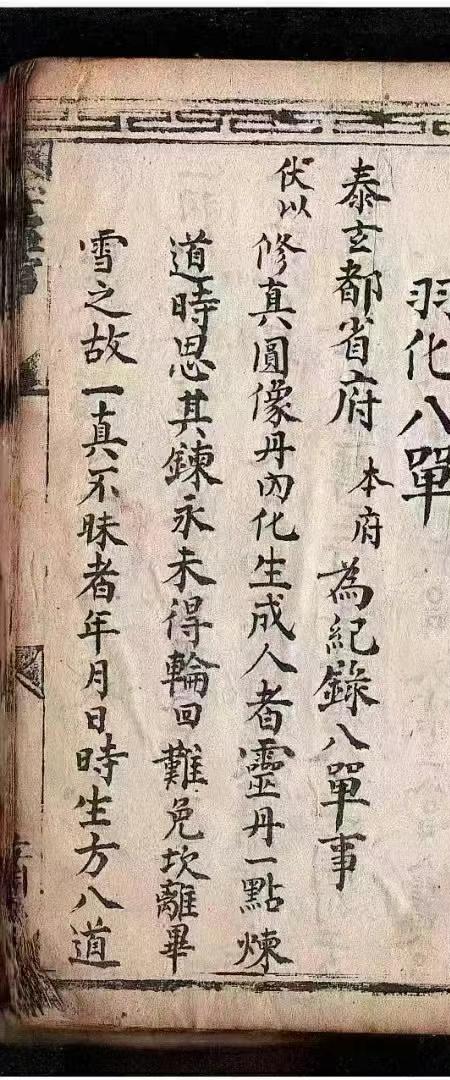 羽化八單
泰玄都省府 本府 為紀錄八單事
伏以 修真圓像丹內化生成人者靈丹一點煉
道時思其鍊永未得輪回難免坎離畢
雪之故一真不昧者年月日時生方八道